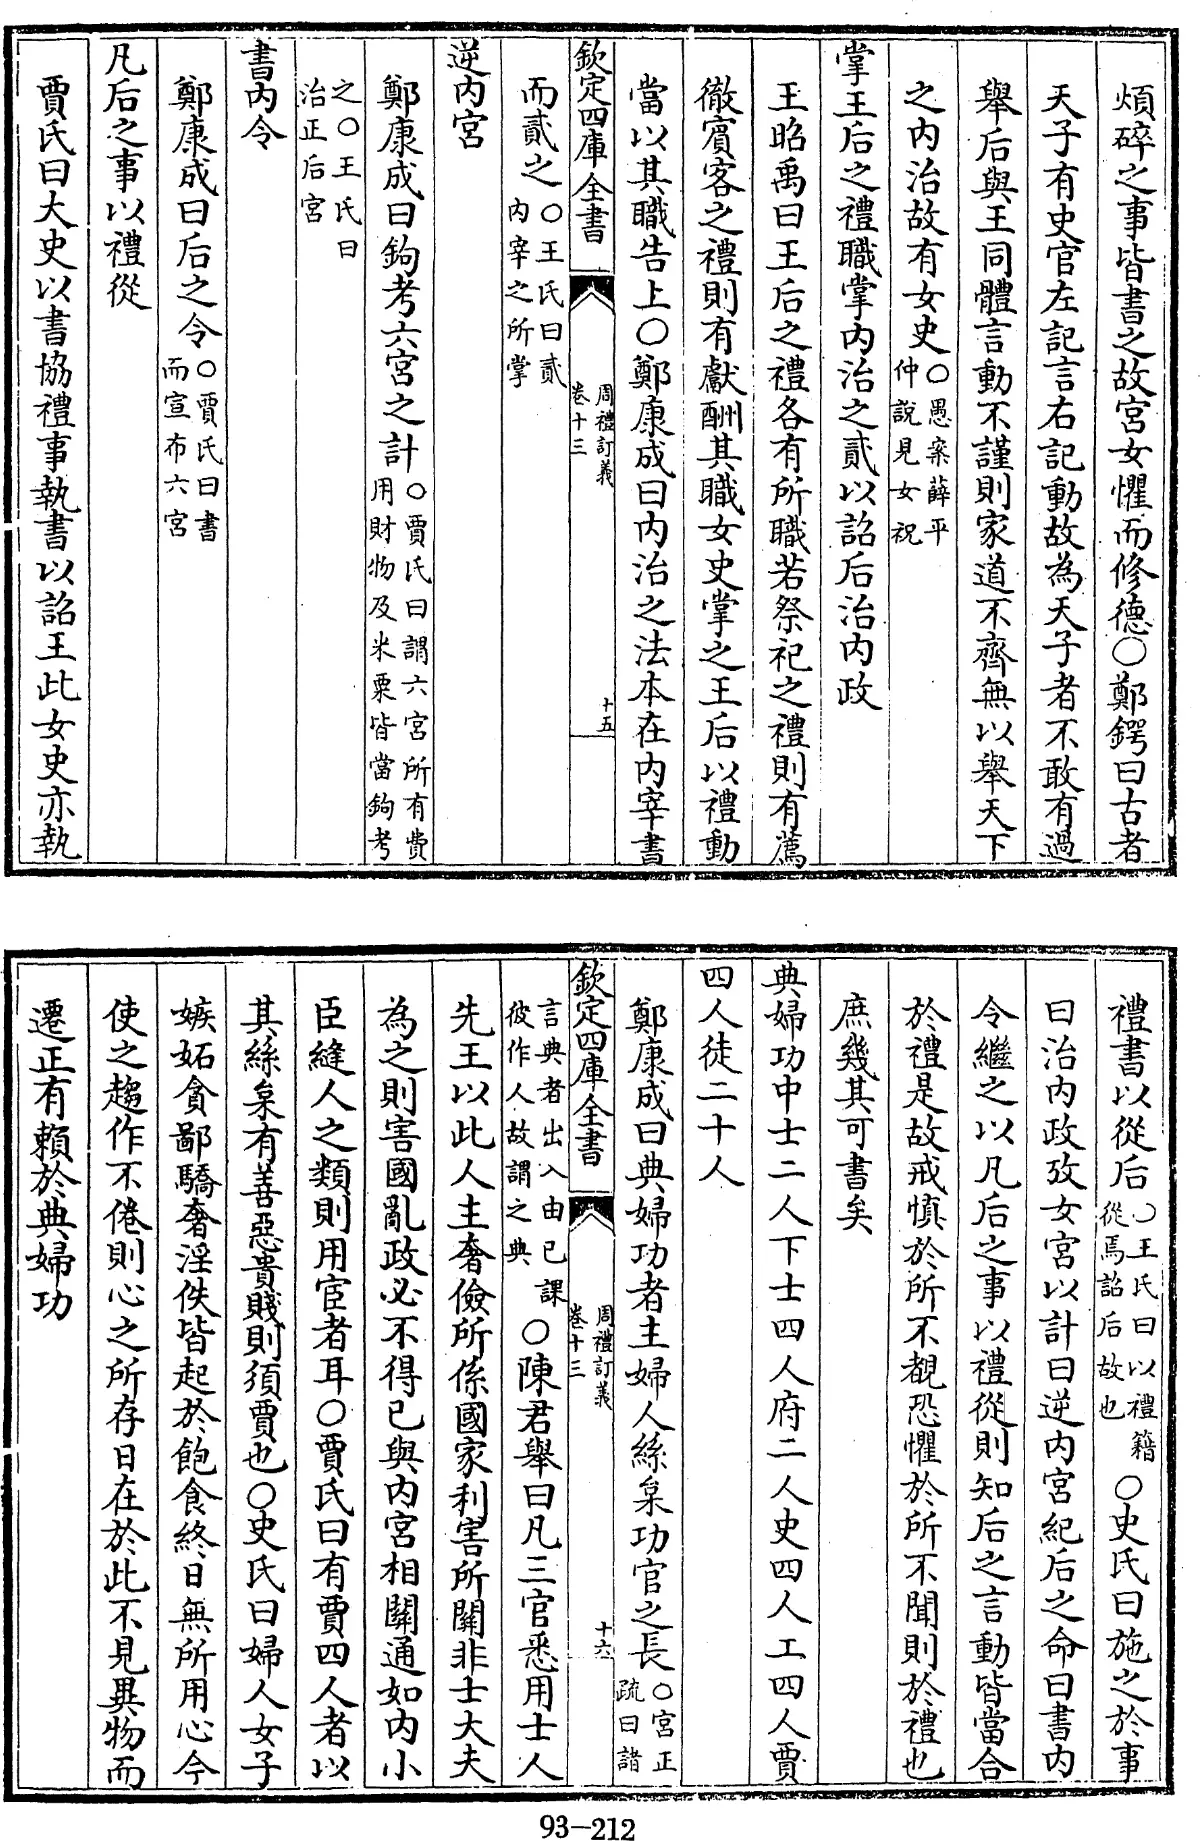 煩碎之事皆書之故宮女懼而修德○鄭鍔曰古者
天子有史官左記言右記動故為天子者不敢有過
舉后與王同體言動不謹則家道不齊無以舉天下
之内治故有女史○愚案薛平仲說見女祝
掌王后之禮職掌内治之貳以詔后治内政
王昭禹曰王后之禮各有所職若祭祀之禮則有薦
徹賓客之禮則有獻酬其職女史掌之王后以禮動
當以其職告上○鄭康成曰内治之法本在内宰書
欽定四庫全書
周禮訂義
卷十三
十五
而貳之○王氏曰貳内宰之所掌
逆内宮
鄭康成曰鉤考六宮之計○賈氏曰謂六宮所有費用財物及米粟皆當鉤考
之○王氏曰治正后宮
書内令
鄭康成曰后之令○賈氏曰書而宣布六宮
凡后之事以禮從
賈氏曰大史以書協禮事執書以詔王此女史亦執
禮書以從后○王氏曰以禮籍從焉詔后故也○史氏曰施之於事
曰治内政攷女宮以計曰逆内宮紀后之命曰書内
令繼之以凡后之事以禮從則知后之言動皆當合
於禮是故戒慎於所不覩恐懼於所不聞則於禮也
庶幾其可書矣
典婦功中士二人下士四人府二人史四人工四人賈
四人徒二十人
鄭康成曰典婦功者主婦人絲枲功官之長○宮正疏曰諸
欽定四庫全書
周禮訂義
卷十三
十六
言典者出入由已課彼作人故謂之典○陳君舉曰凡三官悉用士人
先王以此人主奢儉所係國家利害所關非士大夫
為之則害國亂政必不得已與内宮相關通如内小
臣縫人之類則用宦者耳○賈氏曰有賈四人者以
其絲枲有善惡貴賤則須賈也○史氏曰婦人女子
嫉妬貪鄙驕奢淫佚皆起於飽食終日無所用心今
使之趨作不倦則心之所存日在於此不見異物而
遷正有賴於典婦功
93-212